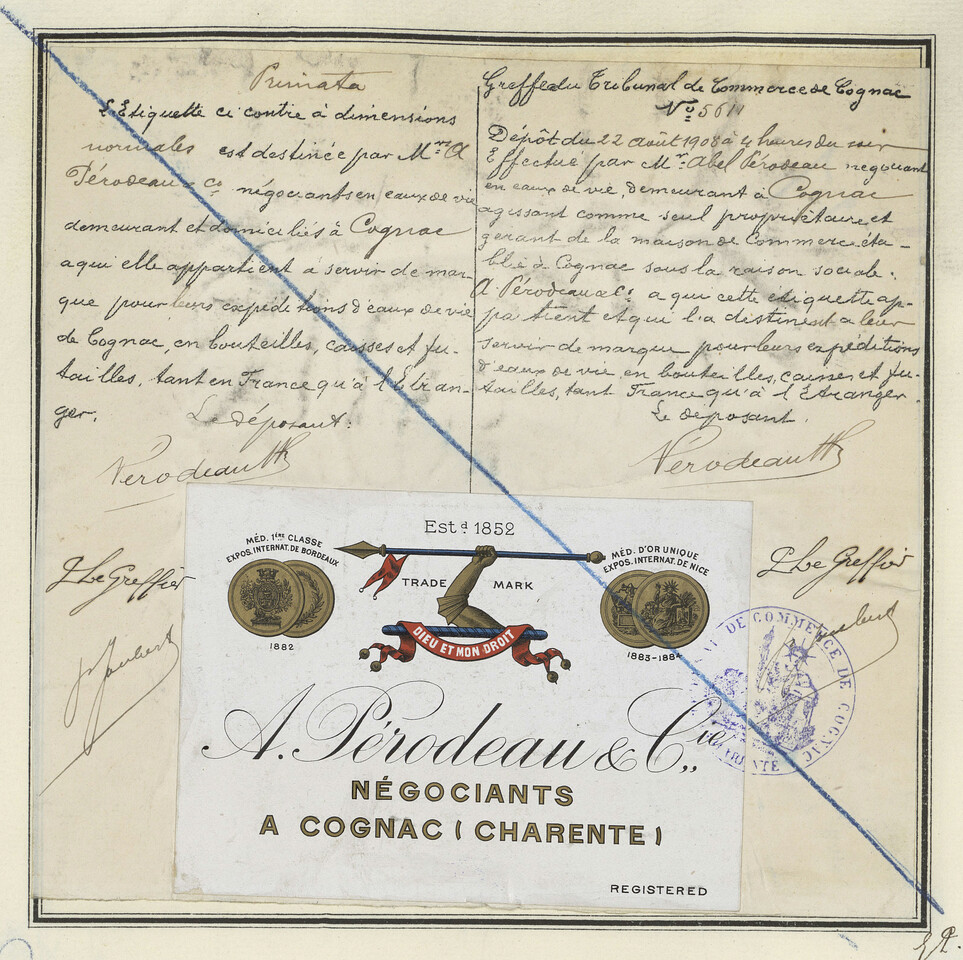 Primata
L'Etiquette ci contre à dimensions
normales est destinée par Mrs A
Pérodeau & Co négociants en eaux de vie
demeurant et domiciliés à Cognac
a qui elle appartient à servir de mar-
que pour leurs expéditions d'eaux de vie
de Cognac, en bouteilles, caisses et fu-
tailles, tant en France qu'à l'Etran-
ger.
Le déposant.
Pérodeau
P Le Greffier
Greffe du Tribunal de Commerce de Cognac
No 5611
Dépôt du 22 août 1908 à 4 heures du soir
Effectué par Mr Abel Pérodeau négociant
en eaux de vie, demeurant à Cognac
agissant comme seul propriétaire et
gérant de la maison de Commerce éta-
blie à Cognac sous la raison sociale.
A Pérodeau & Co a qui cette étiquette ap-
partient et qui l'a destinent a leur
servir de marque pour leurs expéditions
d'eaux de vie, en bouteilles, caisses et fu-
tailles, tant France qu'à l'Etranger.
Le déposant.
Pérodeau
P Le Greffier
Estd 1852
MÉD. 1ère CLASSE
EXPOS. INTERNAT. DE BORDEAUX
1882
TRADE MARK
DIEU ET MON DROIT
MÉD. D'OR UNIQUE
EXPOS. INTERNAT. DE NICE
1883-1884
A. Pérodeau & Cie,,
NÉGOCIANTS
A COGNAC (CHARENTE)
REGISTERED
DE COMMERCE DE COGNAC